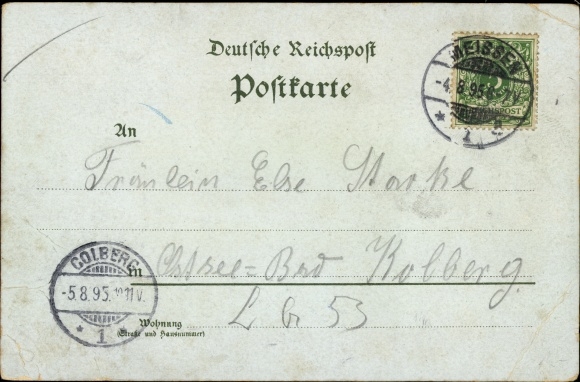 Deutsche Reichspost
Postkarte
MEISSEN
-4.8.95
* 1
5
REICHSPOST
An
Fräulein Else Starke
in Ostsee-Bad Kolberg.
COLBERG
-5.8.95. 10-11V.
* 1
L G 53
Wohnung
(Straße und Hausnummer)